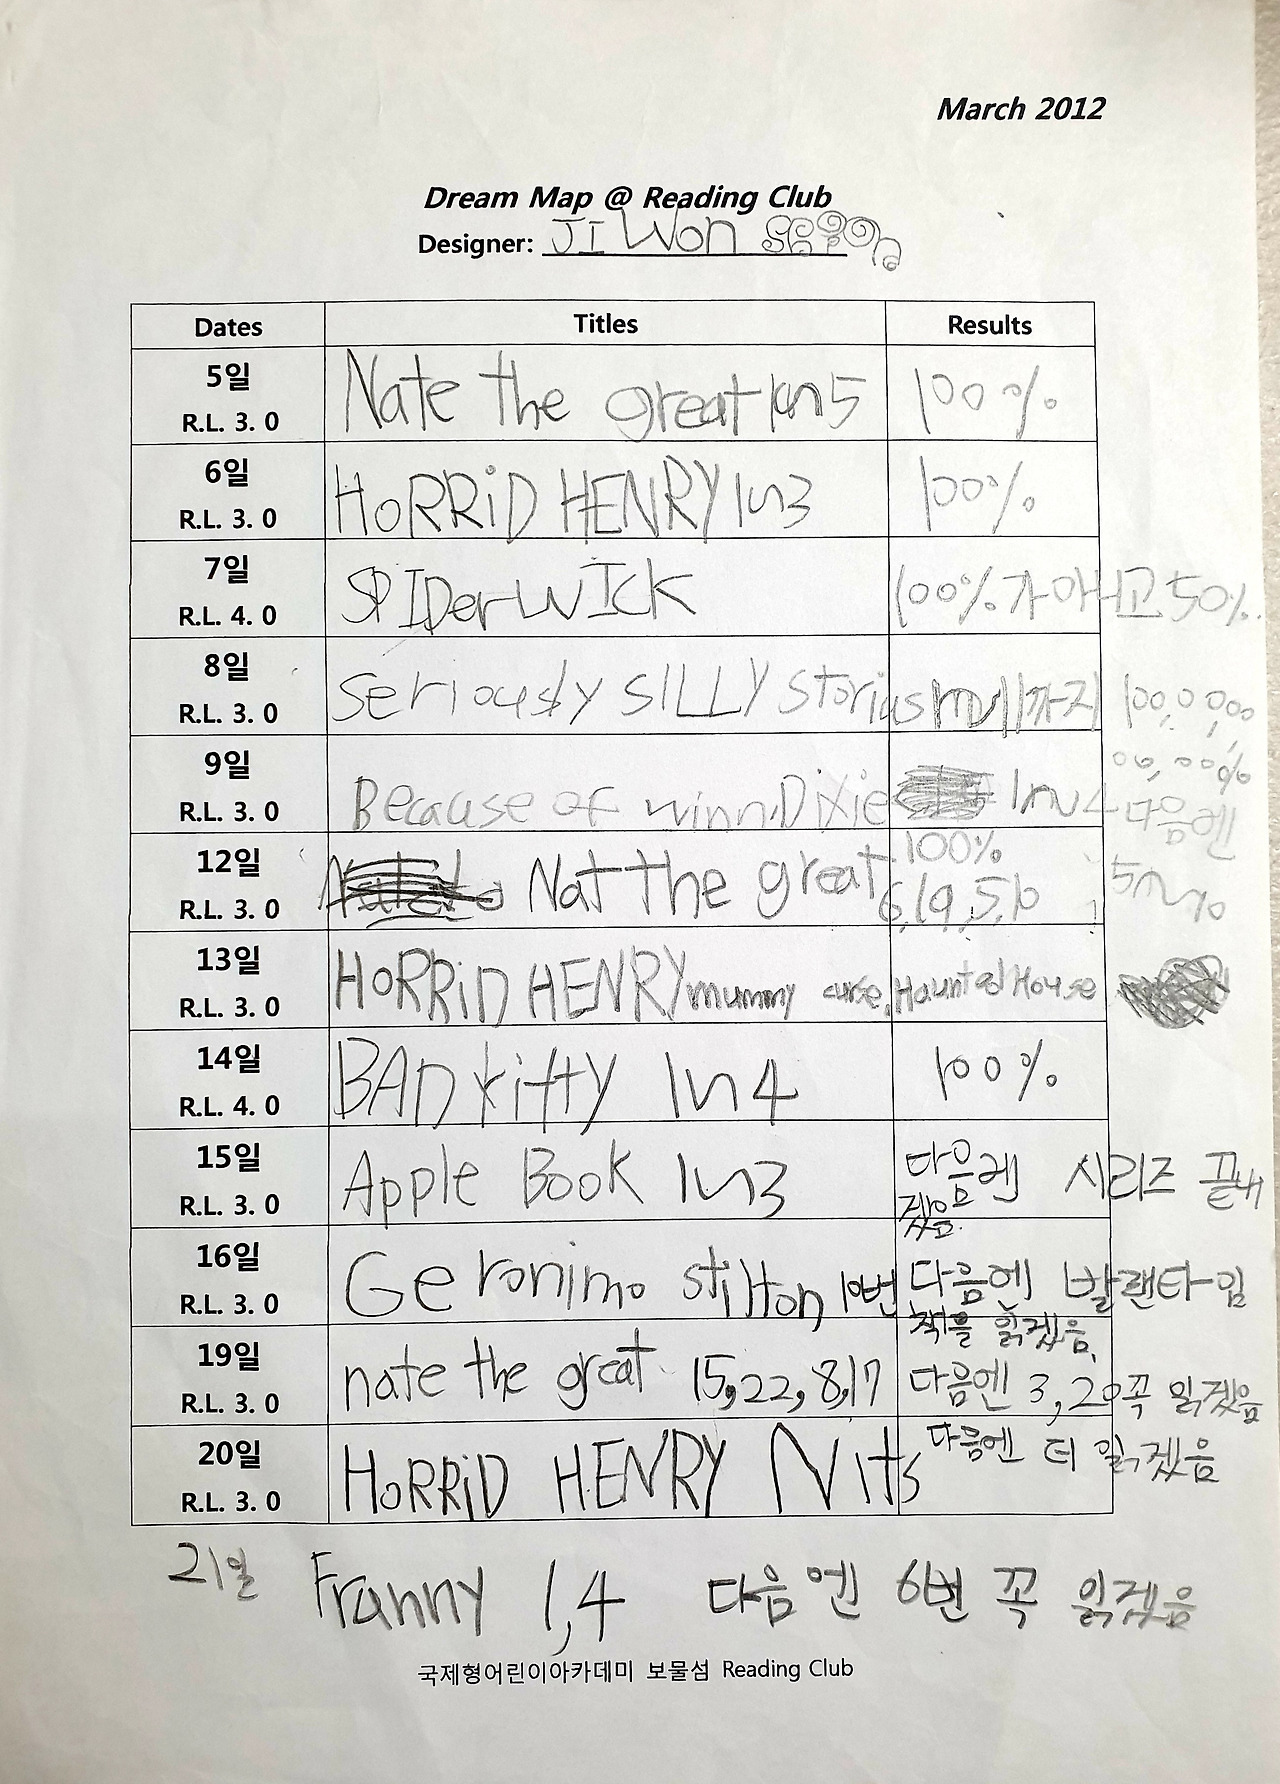 March 2012
Dream Map @ Reading Club
Designer: JI Won
Dates Titles Results
5일 R.L. 3. 0 Nate the great 1~5 100%
6일 R.L. 3. 0 HoRRiD HENRY 1~3 100%
7일 R.L. 4. 0 SPIDerWIck 100%가 아니고 50%
8일 R.L. 3. 0 seriously SILLY storius 11까지 100,0
9일 R.L. 3. 0 Because of winn.Dixie 다음엔 5~10
12일 R.L. 3. 0 Nat the great 100%
6,19,5,10
13일 R.L. 3. 0 HoRRiD HENRY mummy curse, Haunted House
14일 R.L. 4. 0 BAD kitty 1~4 100%
15일 R.L. 3. 0 Apple Book 1~3 다음엔 시리즈 끝내
겠음.
16일 R.L. 3. 0 Geronimo stilton 10번 다음엔 발랜타임
책을 읽겠음.
19일 R.L. 3. 0 nate the great 15,22,8,17 다음엔 3,20꼭 읽겠음
20일 R.L. 3. 0 HoRRiD HENRY Nits 다음엔 더 읽겠음
21일 Franny 1,4 다음엔 6번 꼭 읽겠음
국제형어린이아카데미 보물섬 Reading Club